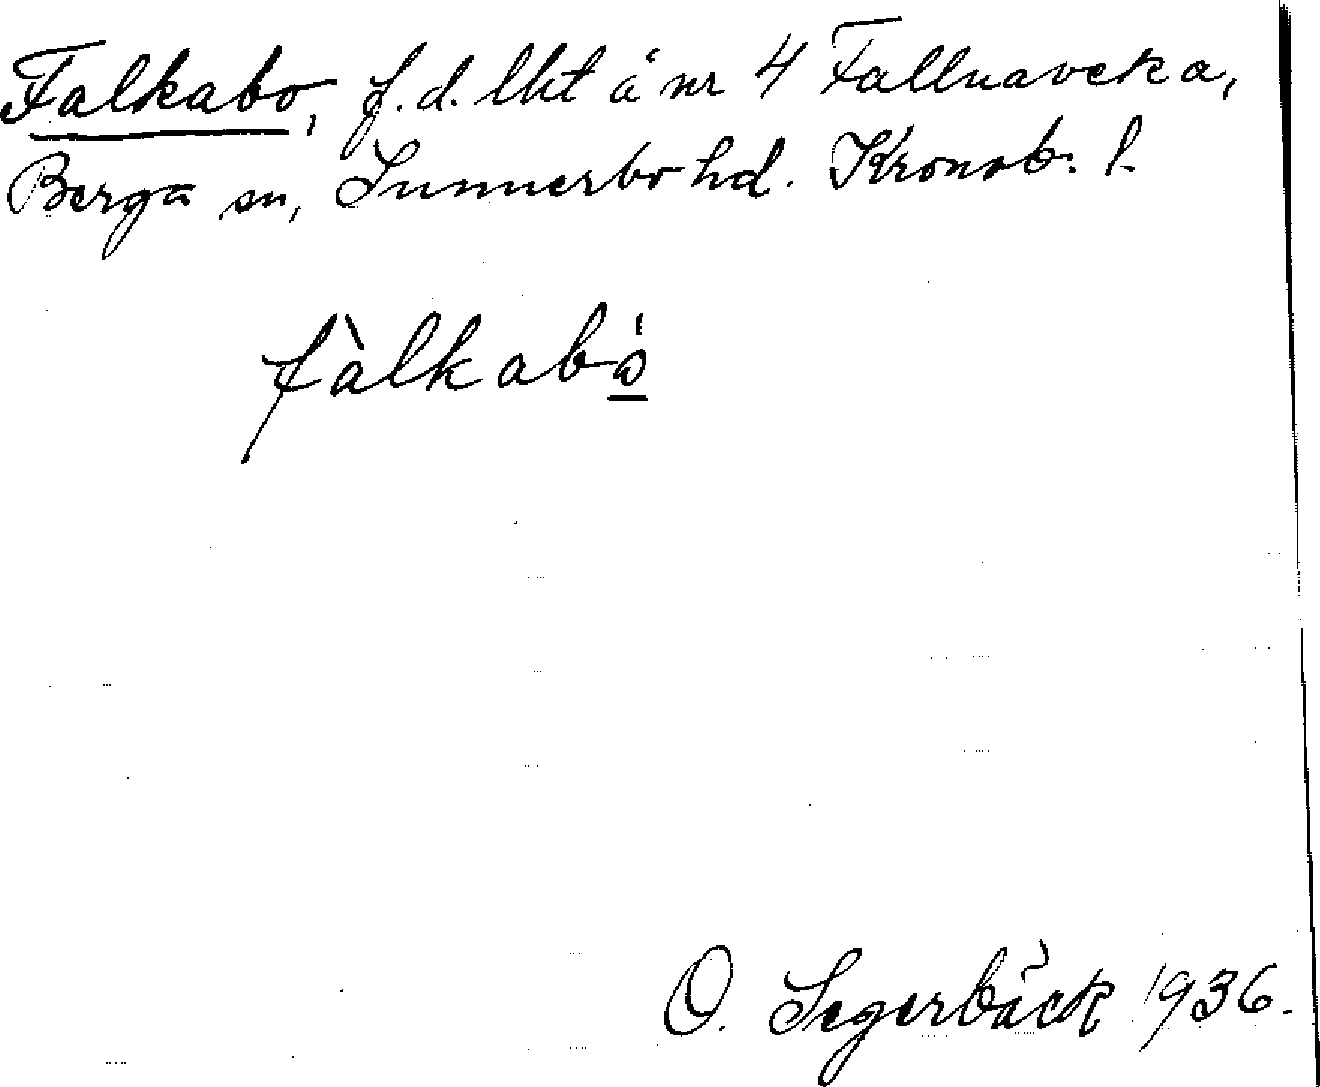 Falkabo, f.d. lht å nr 4 Fallnaveka,
Berga sn, Sunnerbo hd. Kronob. l.
fàlkabó
O. Segerbäck 1936.